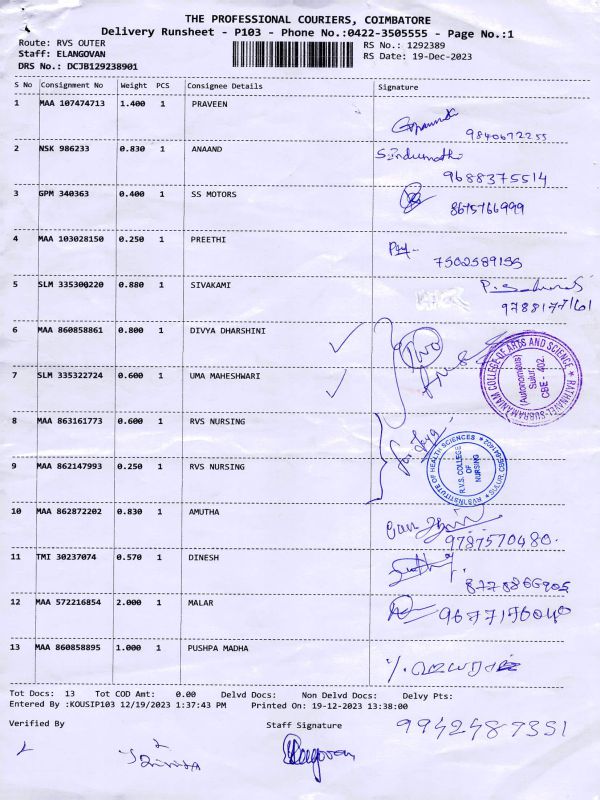 THE PROFESSIONAL COURIERS, COIMBATORE
Delivery Runsheet - P103 - Phone No.:0422-3505555 - Page No.:1
Route: RVS OUTER RS No.: 1292389
Staff: ELANGOVAN RS Date: 19-Dec-2023
DRS No.: DCJB129238901
S No Consignment No Weight PCS Consignee Details Signature
1 MAA 107474713 1.400 1 PRAVEEN
9840672255
2 NSK 986233 0.830 1 ANAAND
9688375514
3 GPM 340363 0.400 1 SS MOTORS
8675766999
4 MAA 103028150 0.250 1 PREETHI
7502589155
5 SLM 335300220 0.880 1 SIVAKAMI
9788177161
6 MAA 860858861 0.800 1 DIVYA DHARSHINI
Two
RATHNAVEL SUBRAMANIAM COLLEGE OF ARTS AND SCIENCE
(Autonomous)
Sulur,
CBE - 402.
7 SLM 335322724 0.600 1 UMA MAHESHWARI
8 MAA 863161773 0.600 1 RVS NURSING
RVS INSTITUTE OF HEALTH SCIENCES
R.V.S. COLLEGE
OF
NURSING
9 MAA 862147993 0.250 1 RVS NURSING
10 MAA 862872202 0.830 1 AMUTHA
9787570480.
11 TMI 30237074 0.570 1 DINESH
8778866905
12 MAA 572216854 2.000 1 MALAR
13 MAA 860858895 1.000 1 PUSHPA MADHA
Tot Docs: 13 Tot COD Amt: 0.00 Delvd Docs: Non Delvd Docs: Delvy Pts:
Entered By :KOUSIP103 12/19/2023 1:37:43 PM Printed On: 19-12-2023 13:38:00
Verified By Staff Signature 9942487351
Elangovan